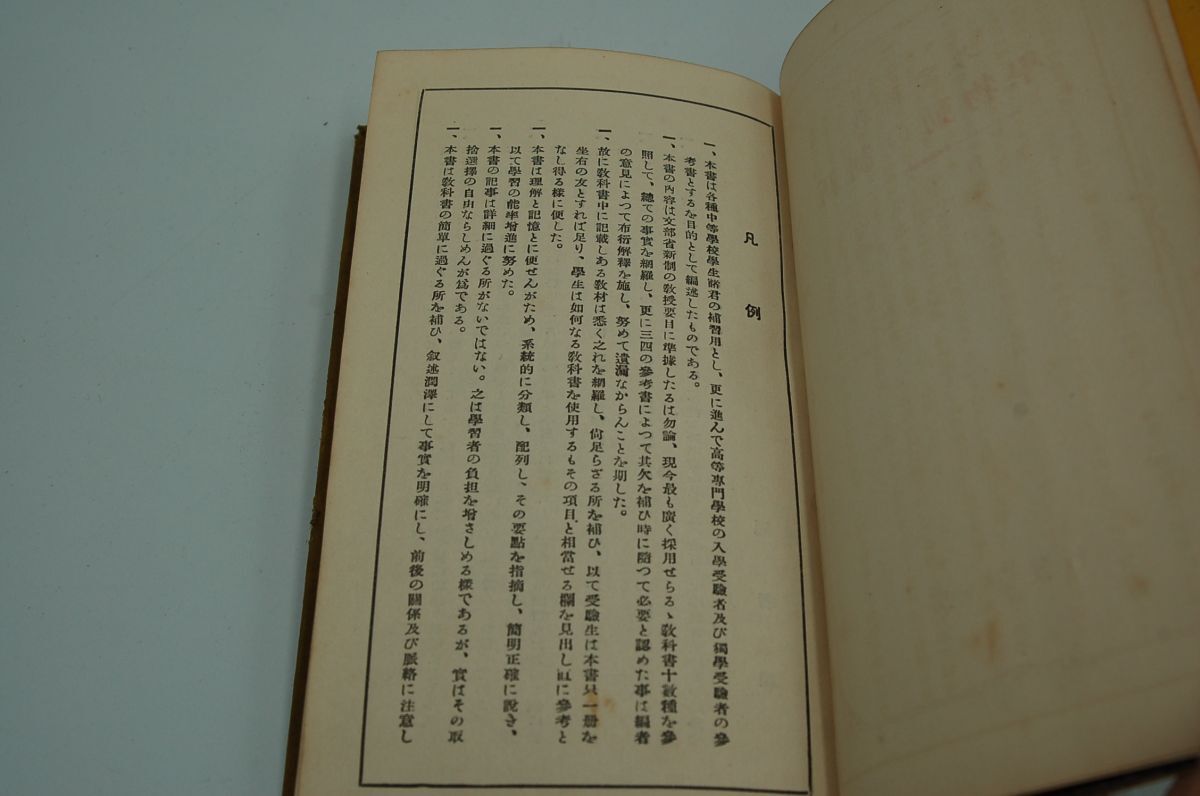 凡例
一、本書は各種中等學校學生諸君の補習用とし、更に進んで高等專門學校の入學受驗者及び獨學受驗者の參
考書とするを目的として編述したものである。
一、本書の內容は文部省新制の敎授要目に準據したるは勿論、現今最も廣く採用せらるゝ敎科書十數種を參
照して、總ての事實を網羅し、更に三四の參考書によつて其欠を補ひ時に隨つて必要と認めた事は編者
の意見によつて布衍解釋を施し、努めて遺漏なからんことを期した。
一、故に敎科書中に記載しある敎材は悉く之れを網羅し、尙足らざる所を補ひ、以て受驗生は本書只一册を
坐右の友とすれば足り、學生は如何なる敎科書を使用するもその項目と相當せる欄を見出し直に參考と
なし得る樣に便した。
一、本書は理解と記憶とに便せんがため、系統的に分類し、配列し、その要點を指摘し、簡明正確に說き、
以て學習の能率增進に努めた。
一、本書の記事は詳細に過ぐる所がないではない。之は學習者の負担を增さしめる樣であるが、實はその取
捨選擇の自由ならしめんが爲である。
一、本書は敎科書の簡單に過ぐる所を補ひ、叙述潤澤にして事實を明確にし、前後の關係及び脈絡に注意し